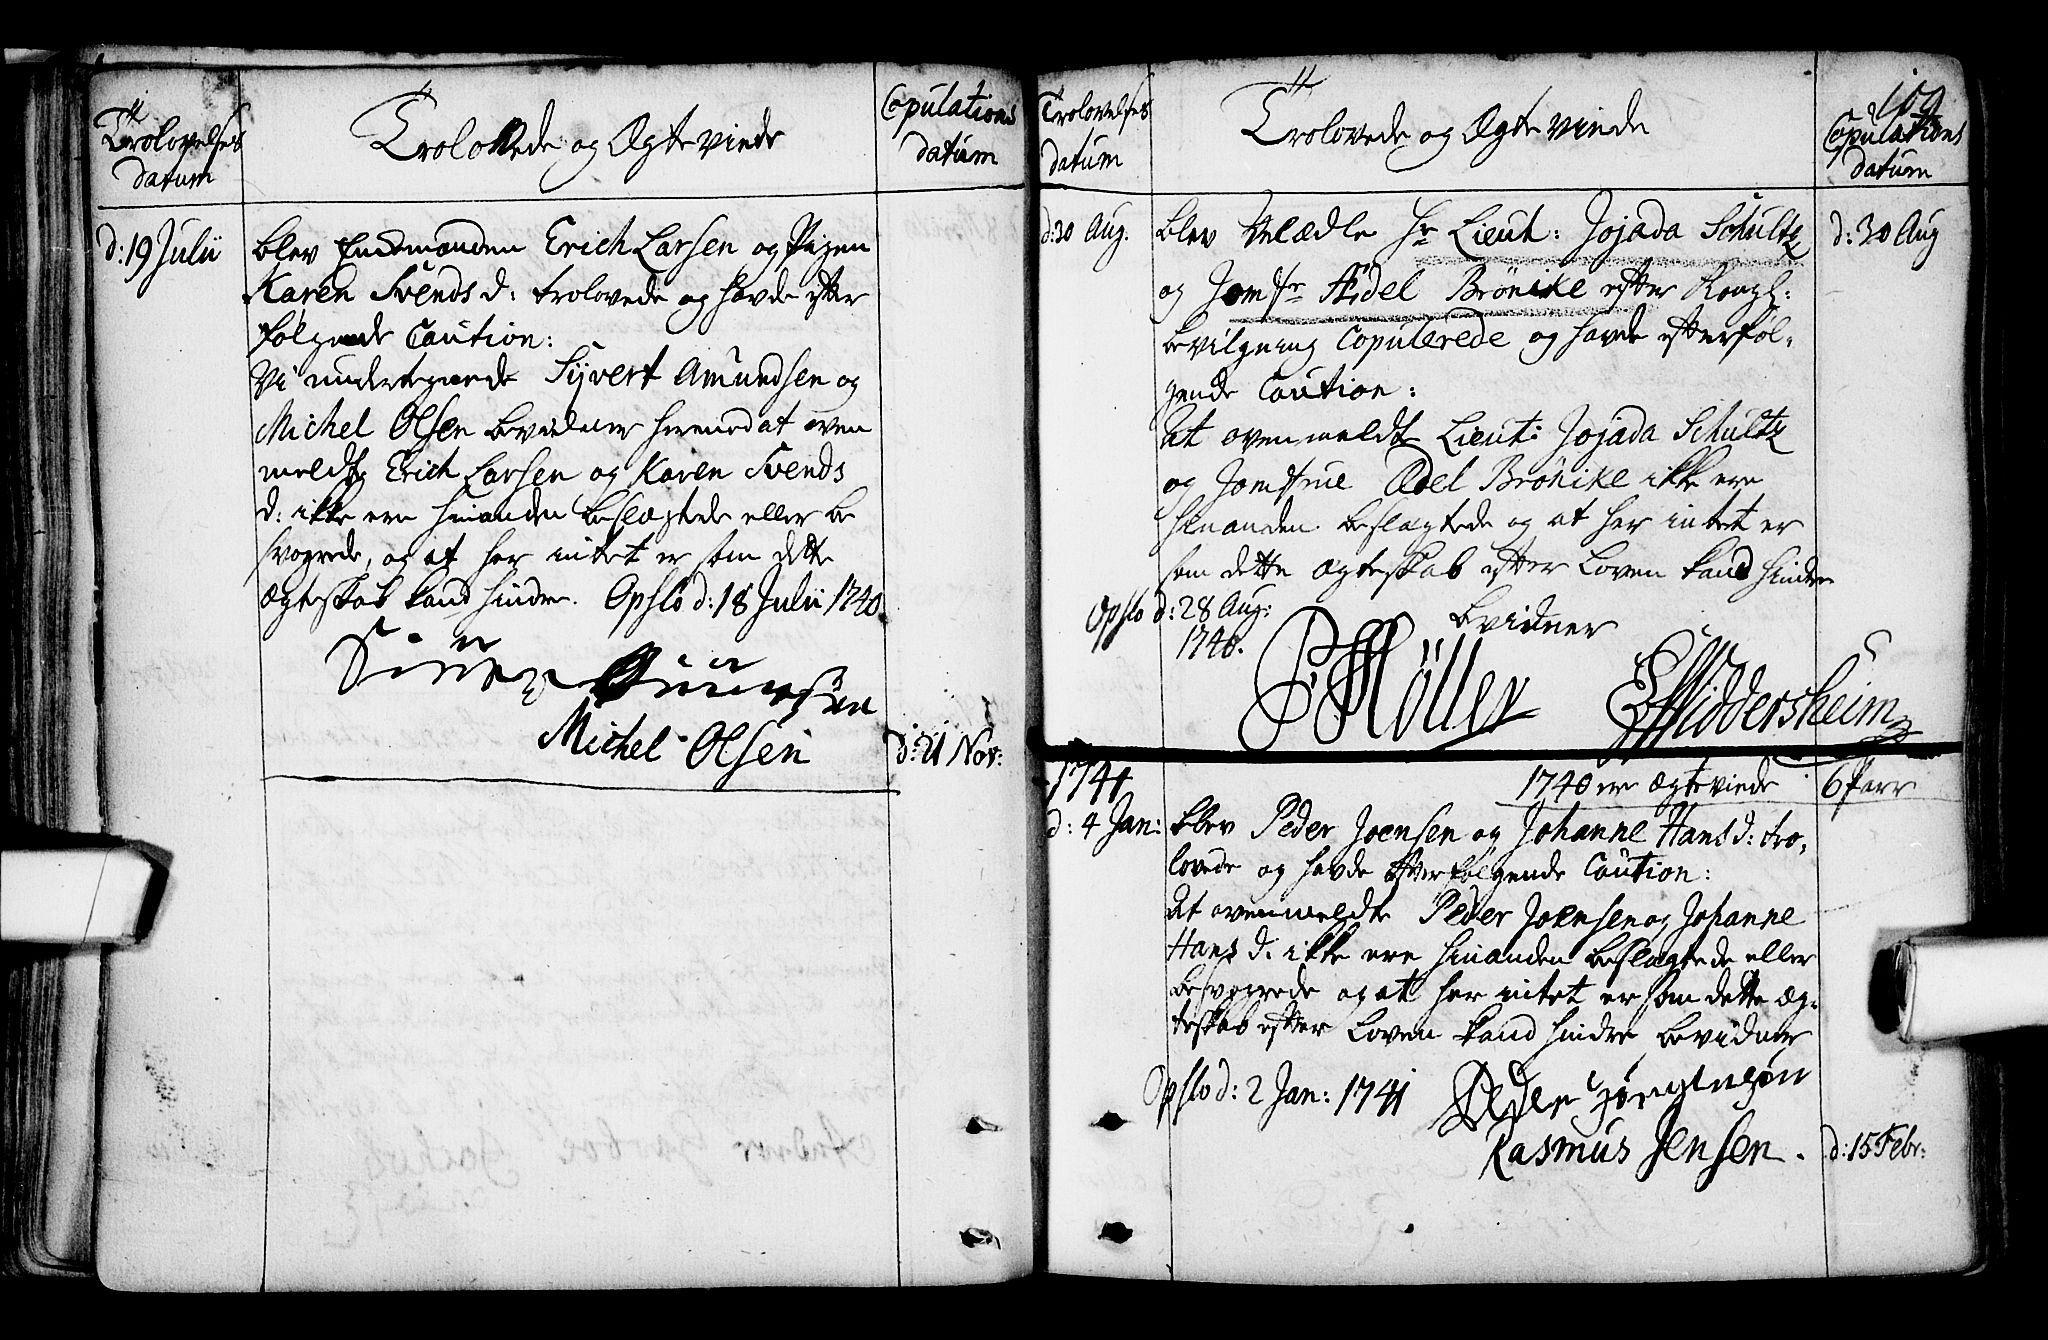 Trolovelses
datum
Trolovede og Ægteviede
Copulations
datum
d: 19 Julii
blev Enckemanden Erich Larsen og Pigen
Karen Svends d: trolovede og hafde efter
følgende Caution:
Vi undertegnede Syvert Amundsen og
Michel Olsen bevidner hermed at oven
meldte Erich Larsen og Karen Svends
d: ikke ere hinanden beslægtede eller be
svogrede, og at her intet er som dette
Ægteskab kand hindre. Opslo d: 18 Julii 1740.
Michel Olsen
d: 21 Nov:
109
Trolovelses
datum
Trolovede og Ægteviede
Copulations
datum
d: 30 Aug.
blev Velædle Hr Lieut: Jojada Schultz
d: 30 Aug
og Jomfr Ædel Brønike efter Kongl:
bevilgning Copulerede og hafde efterføl-
gende Caution:
At ovenmeldte Lieut: Jojada Schultz
og Jomfrue Ædel Brønike ikke ere
hinanden beslægtede og at her intet er
som dette Ægteskab efter Loven kand hindre
Opslo d: 28 Aug:
bevidner
1740.
Möller Middersheim
1741
1740 ere Ægteviede 6 Parr
d: 4 Jan:
blev Peder Joensen og Johanne Hans d: tro-
lovede og hafde efterfølgende Caution:
At ovenmeldte Peder Joensen og Johanne
Hans d: ikke ere hinanden beslægtede eller
besvogrede og at her intet er som dette Æg-
teskab efter Loven kand hindre bevidner
Opslo d: 2 Jan: 1741
Rasmus Jensen.
d: 15 Febr: